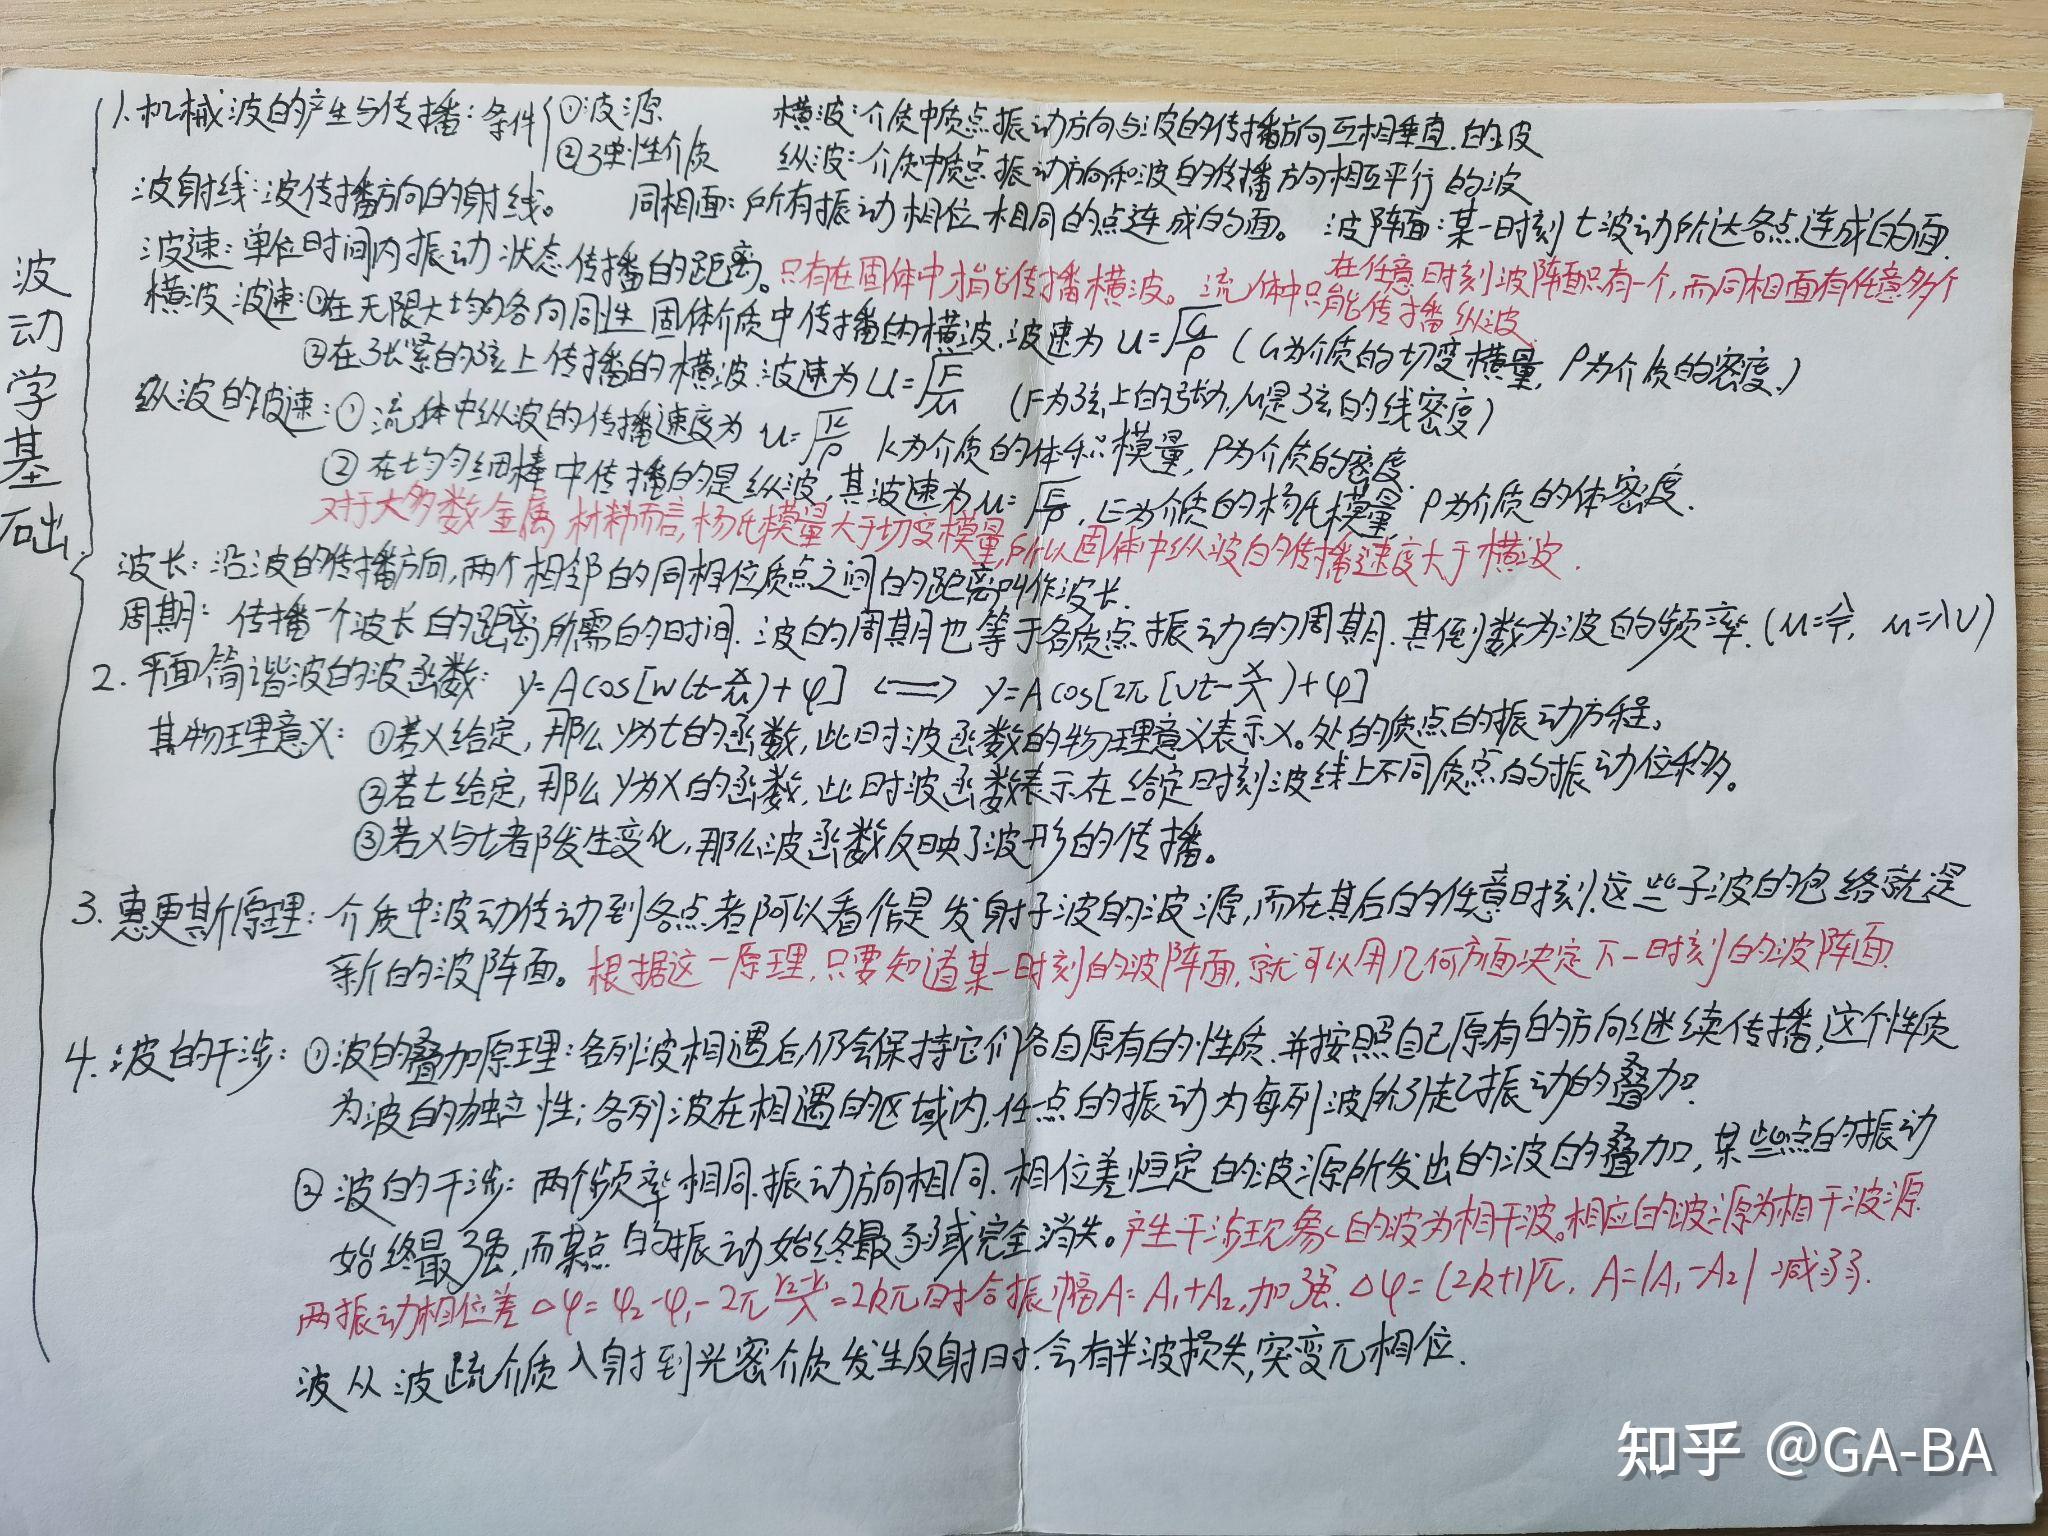 波动学基础
1.机械波的产生与传播:条件 ①波源 横波:介质中质点振动方向与波的传播方向互相垂直.的波
②弹性介质 纵波:介质中质点振动方向和波的传播方向相互平行的波
波射线:波传播方向的射线。 同相面:所有振动相位相同的点连成的面。 波阵面:某一时刻t波动所达各点连成的面.
波速:单位时间内振动状态传播的距离。只有在固体中才能传播横波。流体中只能传播纵波. 在任意时刻波阵面只有一个,而同相面有任意多个
横波波速:①在无限大均匀各向同性固体介质中传播的横波.波速为 u=√G/ρ (G为介质的切变模量,ρ为介质的密度.)
②在张紧的弦上传播的横波.波速为u=√F/μ (F为弦上的张力,μ是弦的线密度)
纵波的波速:①流体中纵波的传播速度为 u=√K/ρ K为介质的体积模量,ρ为介质的密度.
②在均匀细棒中传播的是纵波,其波速为u=√E/ρ,E为介质的杨氏模量,ρ为介质的体密度.
对于大多数金属材料而言,杨氏模量大于切变模量,所以固体中纵波的传播速度大于横波.
波长:沿波的传播方向,两个相邻的同相位质点之间的距离叫作波长.
周期:传播一个波长的距离所需的时间.波的周期也等于各质点振动的周期.其倒数为波的频率.(u=λ/T, u=λν)
2.平面简谐波的波函数: y=Acos[w(t-x/u)+φ] <=> y=Acos[2π[νt-x/λ)+φ]
其物理意义:①若x给定,那么y为t的函数,此时波函数的物理意义表示x。处的质点的振动方程。
②若t给定,那么y为x的函数,此时波函数表示在给定时刻波线上不同质点的振动位移。
③若x与t都发生变化,那么波函数反映了波形的传播。
3.惠更斯原理:介质中波动传动到各点都可以看作是发射子波的波源,而在其后的任意时刻.这些子波的包络就是
新的波阵面。根据这一原理,只要知道某一时刻的波阵面,就可以用几何方面决定下一时刻的波阵面.
4.波的干涉:①波的叠加原理:各列波相遇后,仍会保持它们各自原有的性质.并按照自己原有的方向继续传播,这个性质
为波的独立性;各列波在相遇的区域内,任一点的振动为每列波所引起振动的叠加.
②波的干涉:两个频率相同.振动方向相同.相位差恒定的波源所发出的波的叠加,某些点的振动
始终最强,而某点的振动始终最弱或完全消失。产生干涉现象的波为相干波。相应的波源为相干波源
两振动相位差Δφ=φ2-φ1-2π(r2-r1)/λ=2kπ时合振幅A=A1+A2,加强.Δφ=(2k+1)π,A=|A1-A2|减弱.
波从波疏介质入射到光密介质发生反射时.会有半波损失,突变π相位.
知乎 @GA-BA